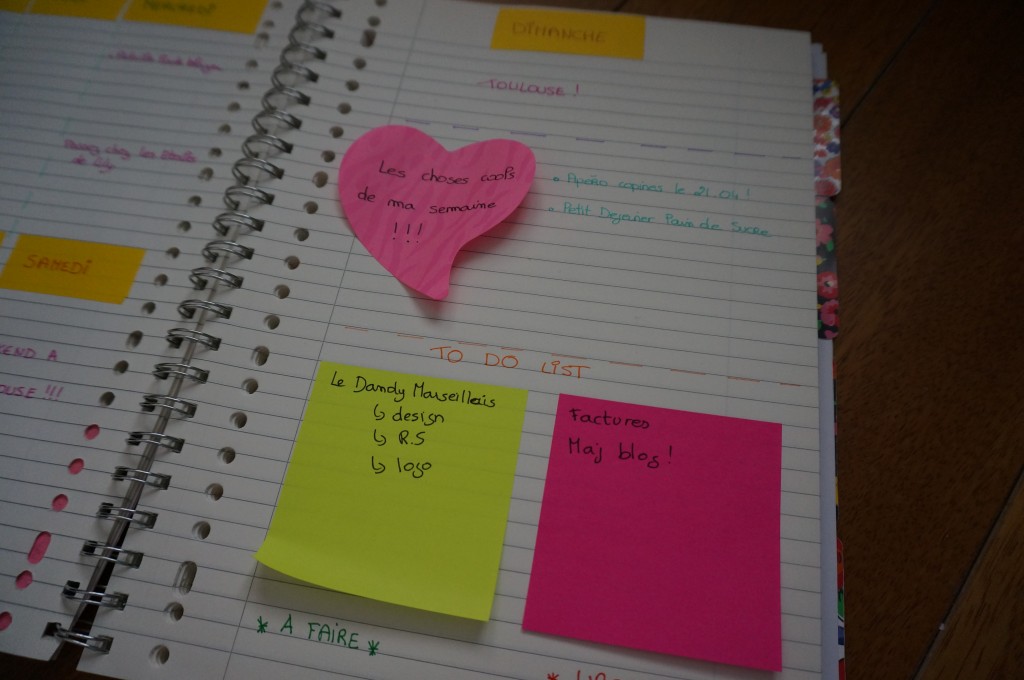 MERCREDI
chez les
SAMEDI
DIMANCHE
TOULOUSE !
Les choses cools
de ma semaine
!!!
• Apéro copines le 21.04 !
• Petit Dejeuner Pain de Sucre
TO DO LIST
Le Dandy Marseillais
↳ design
↳ R.S
↳ logo
Factures
Maj blog !
* A FAIRE *